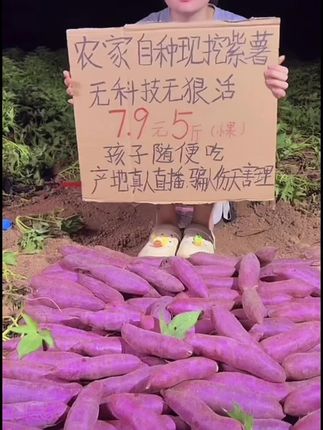 农家自种现挖紫薯
无科技无狠活
7.9元5斤(小果)
孩子随便吃
产地真人直播骗人伤天害理